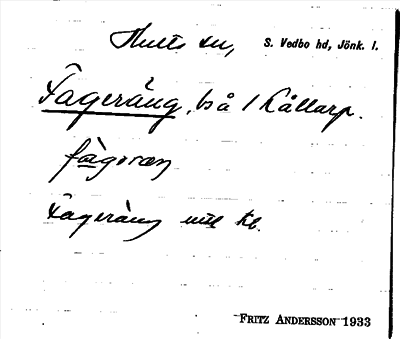 Hults sn, S. Vedbo hd, Jönk. l.
Fageräng, bs å / Källarp.
fàgəræŋ
Fageräng utt kl.
FRITZ ANDERSSON 1933